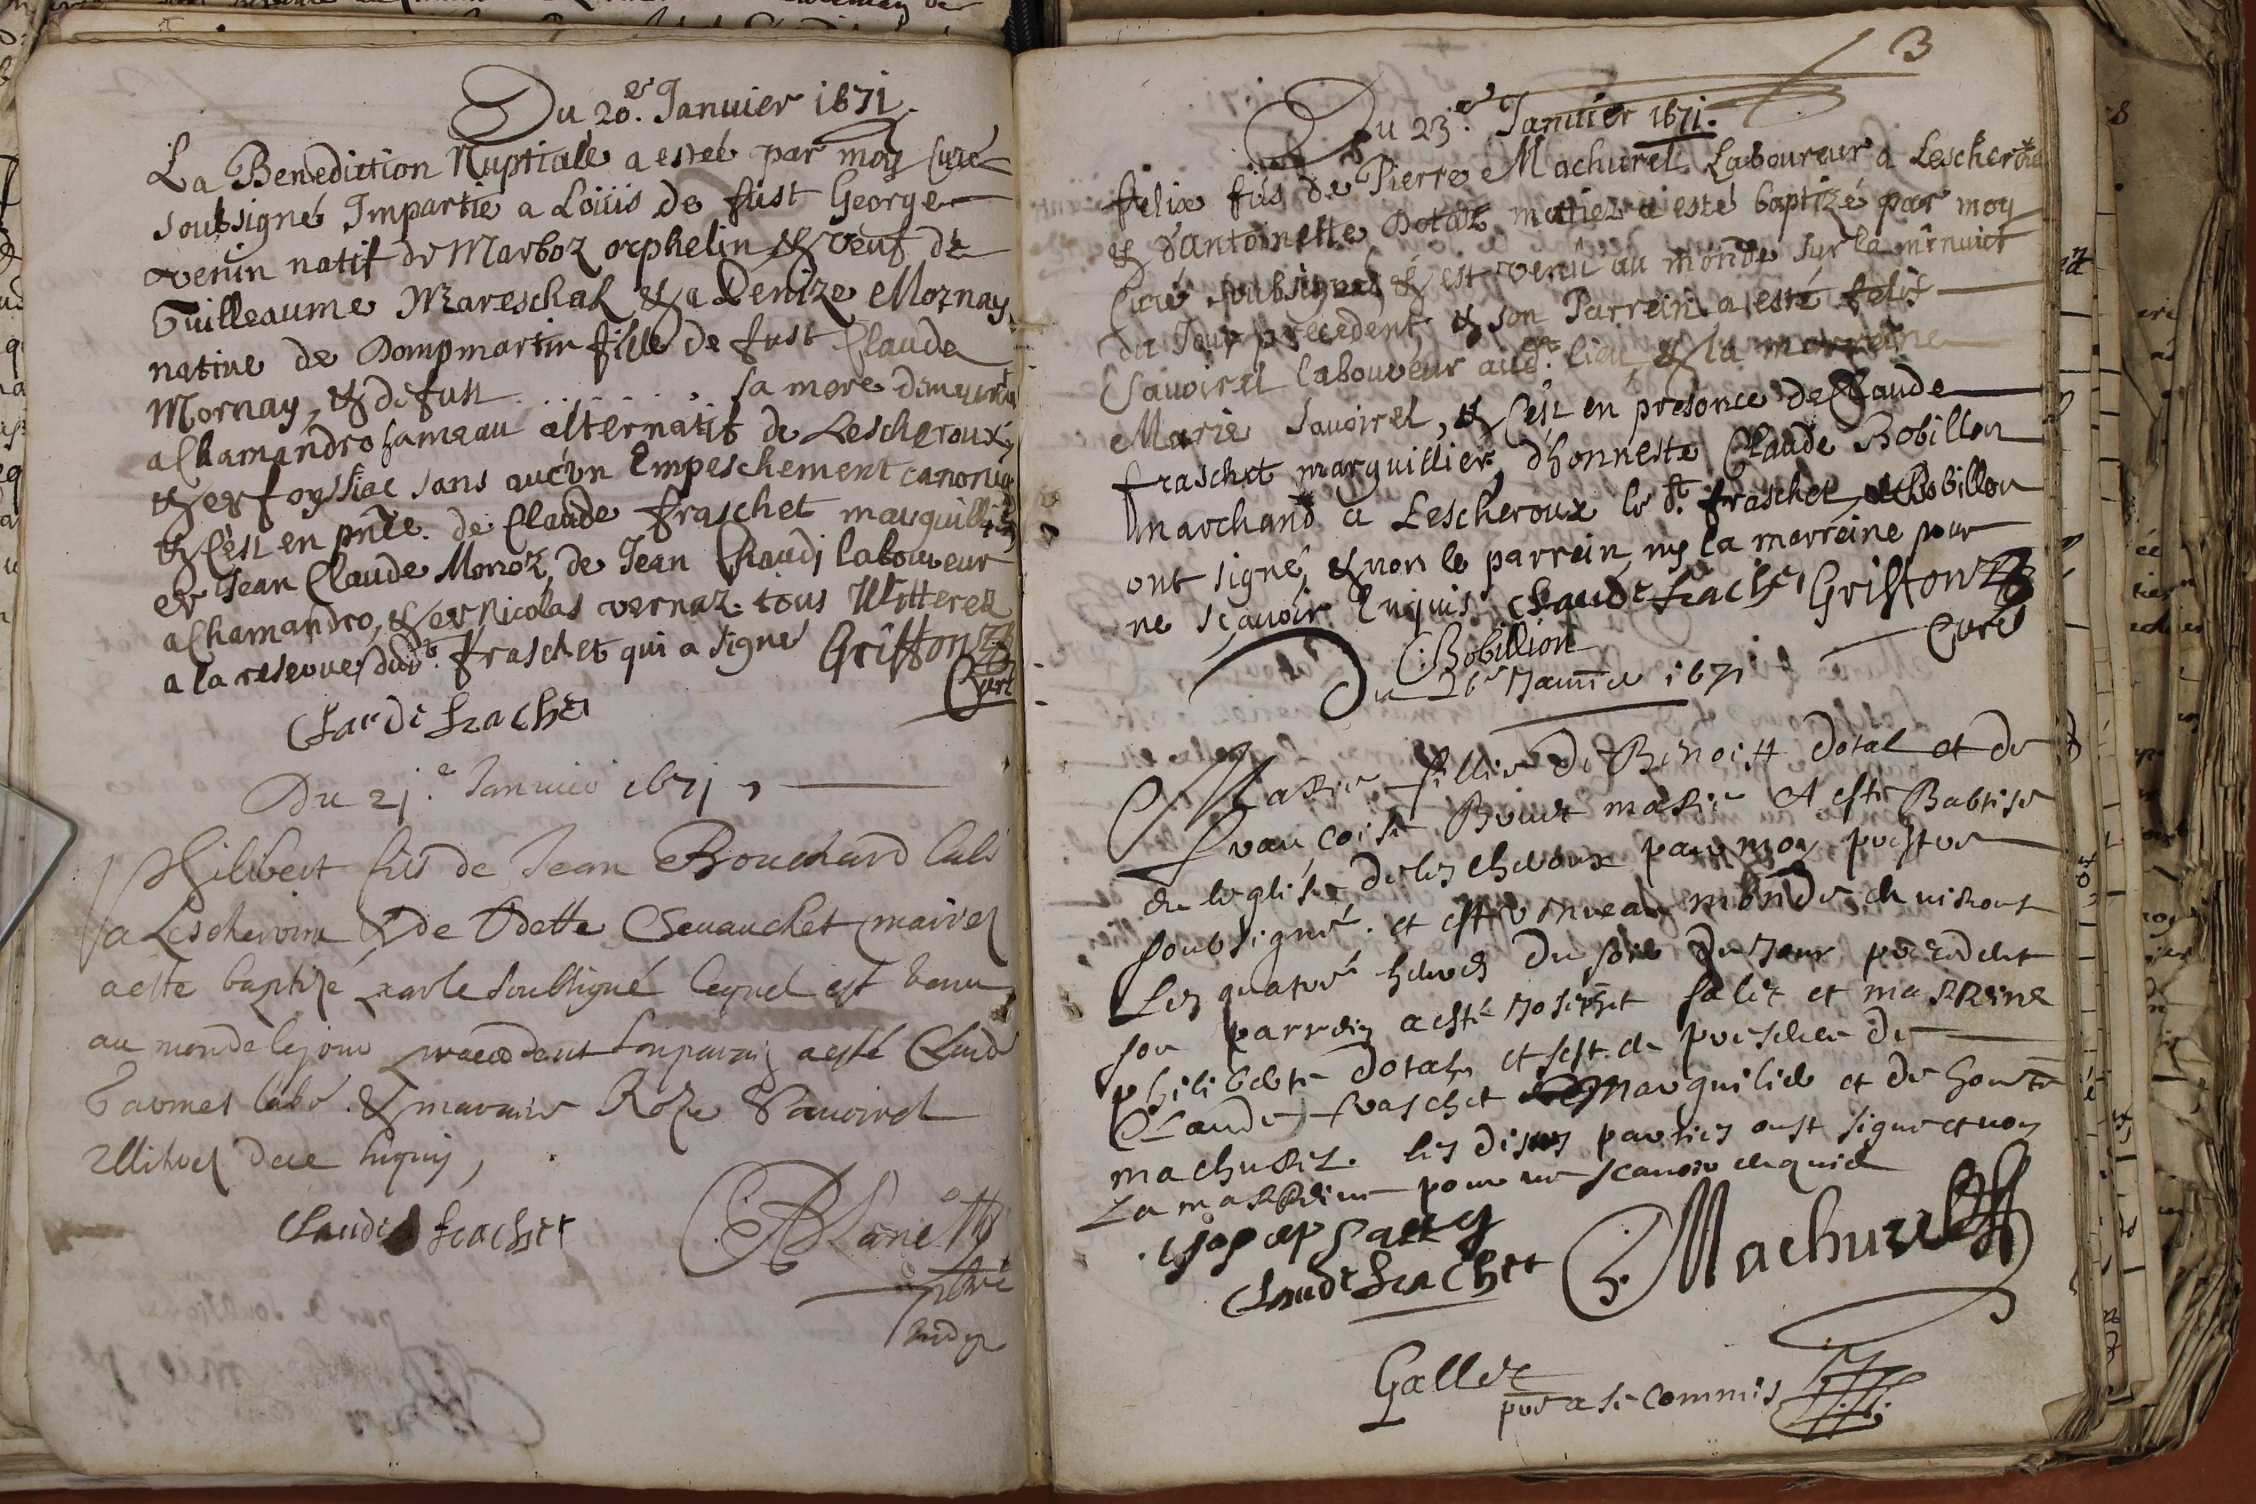 Du 20.e Januier 1671.
La Benediction Nuptiale a esteé par moy Curé
soubsigné Impartie a Loüis de fust George
venin natif de Marboz orphelin & veuf de
Guilleaume Mareschal & a Denize Mornay
natiue de Dompmartin fille de fust Claude
Mornay, & de fust . . . . . . sa mere demeurant
a Chamandro hameau alternatif de Lescheroux
& er foyssiac sans aucun Empeschement canoniq
& C'est en pnce. de Claude fraschet marguillier
er Jean Claude Monoz, de Jean Chaudi laboureur
a Chamandro, & er Nicolas vernaz. tous Illitterez
a la reserue dud.t fraschet qui a signé Griffon
Curé
Claude frachet
Du 21.e Januier 1671,
Philibert fils de Jean Bouchard labr
a Lescheroux & de Odette Cheuauchet mariez
a este baptizé par le soubsigné lequel est venu
au monde le jour præcedent son parain a esté Claude
labr. & maraine Roze Sauoirel
Illitrez de ce Enquis,
Claude frachet
pbre
3
Du 23.e Januier 1671.
felix fils de Pierre Machurel Laboureur a Lescheroux
& d'Antoinette Dotaz mariez a esté baptizé par moy
Curé soubsigné & est venu au monde sur la minuict
du Jour precedent, & son Parrein a esté felix
Sauoirel laboureur aud.t lieu, & la marreine
Marie Sauoirel, & C'est en presence de Claude
fraschet marguillier, d'honneste Claude Bobillon
marchand a Lescheroux le d.t fraschet, & Bobillon
ont signé, & non le parrein ny la marreine pour
ne sçauoir Enquis. Claude frachet Griffon
C: Bobillion Curé
Du 26e Januier 1671
Marie fillie de Benoist dotal et de
francoise Bouet marie A este Babtise
en leglise de les cheroux par moy prestre
soubsigné. et est venue au monde enuiront
Les quatre heures du soir du Jour precedent
son parrein a esté Joseph salet et marreine
philiberte dotal et sest en presence de
Claude fraschet marguilier et de honeste
machurel. les dises parties onst signe et non
La marreine pour ne scauoir enquise
Claude frachet C. Machurel
Gallet
pre a se commis